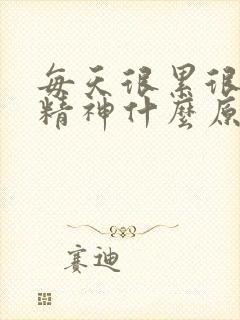 每天很累很
精神什麼原
赛迪